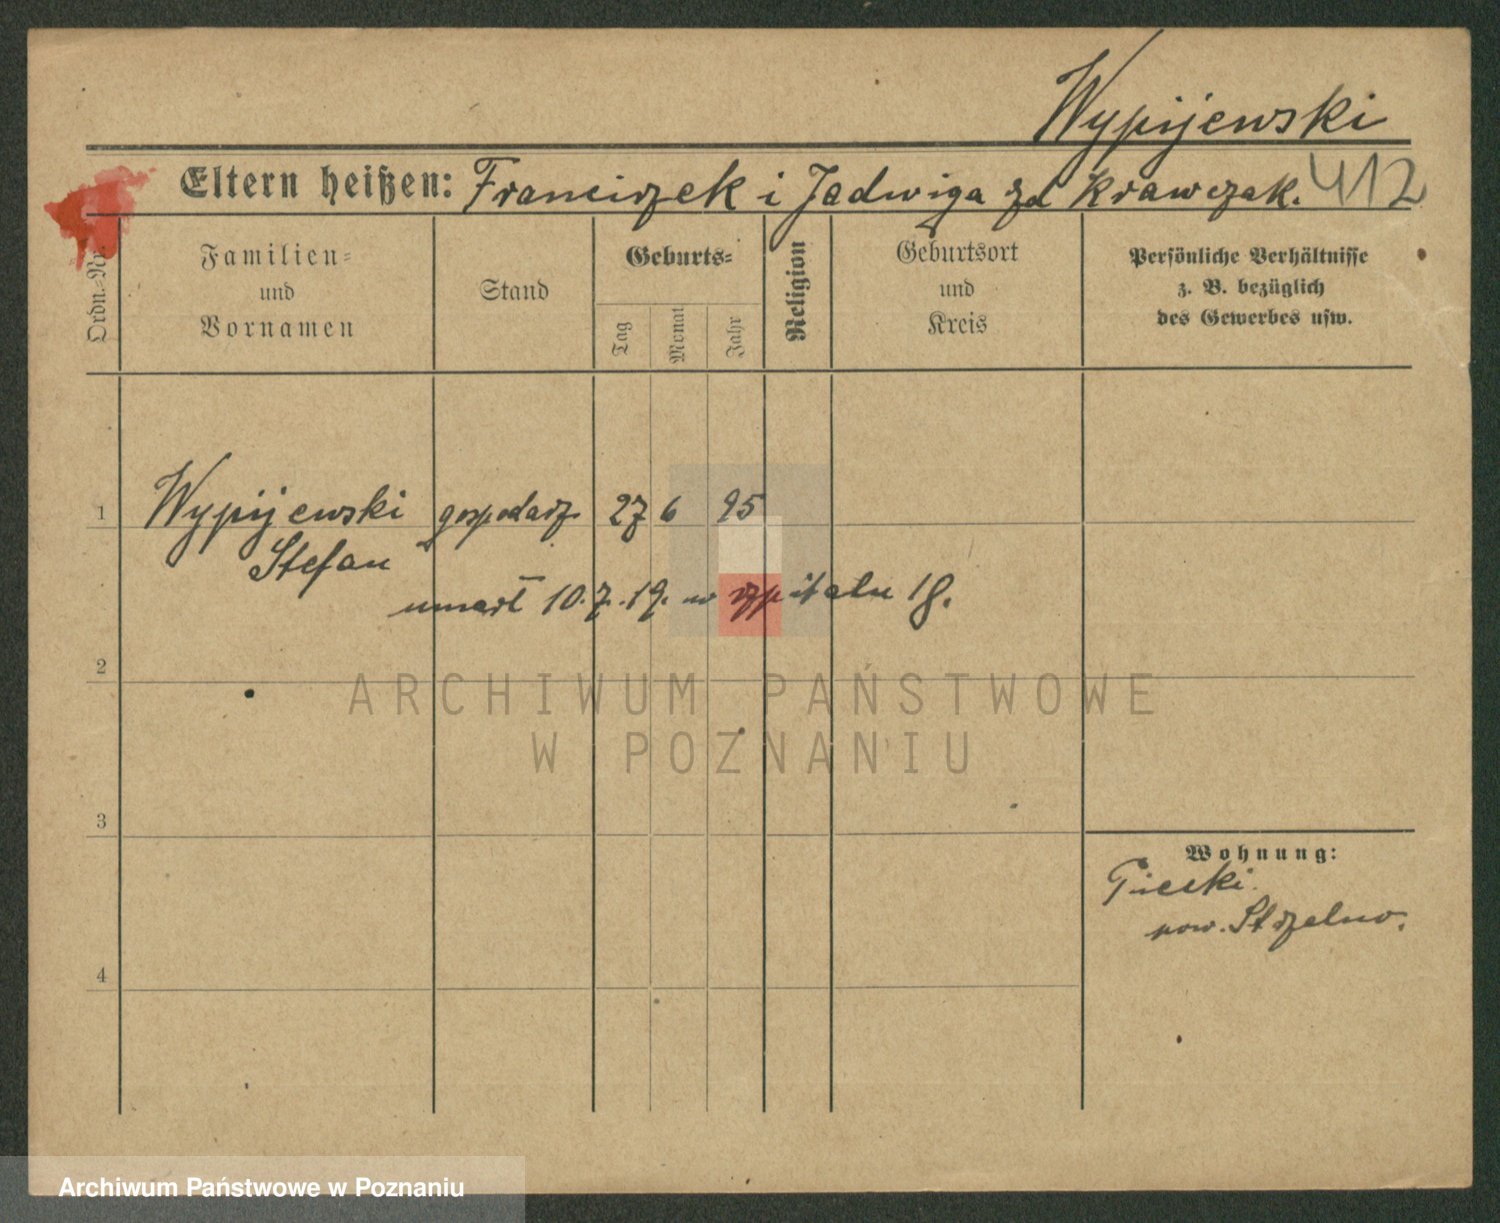 Wypijewski
Eltern heißen: Franciszek i Jadwiga zd Krawczak. 412
Ordn.-Nr.
Familien- und Vornamen
Stand
Geburts-
Tag
Monat
Jahr
Religion
Geburtsort und Kreis
Persönliche Verhältnisse
z. B. bezüglich
des Gewerbes usw.
1 Wypijewski gospodarz 27 6 95
Stefan
umarł 10.7.19. w szpitalu 18.
2
ARCHIWUM PAŃSTWOWE
W POZNANIU
3
Wohnung:
pow. Strzelno.
4
Archiwum Państwowe w Poznaniu